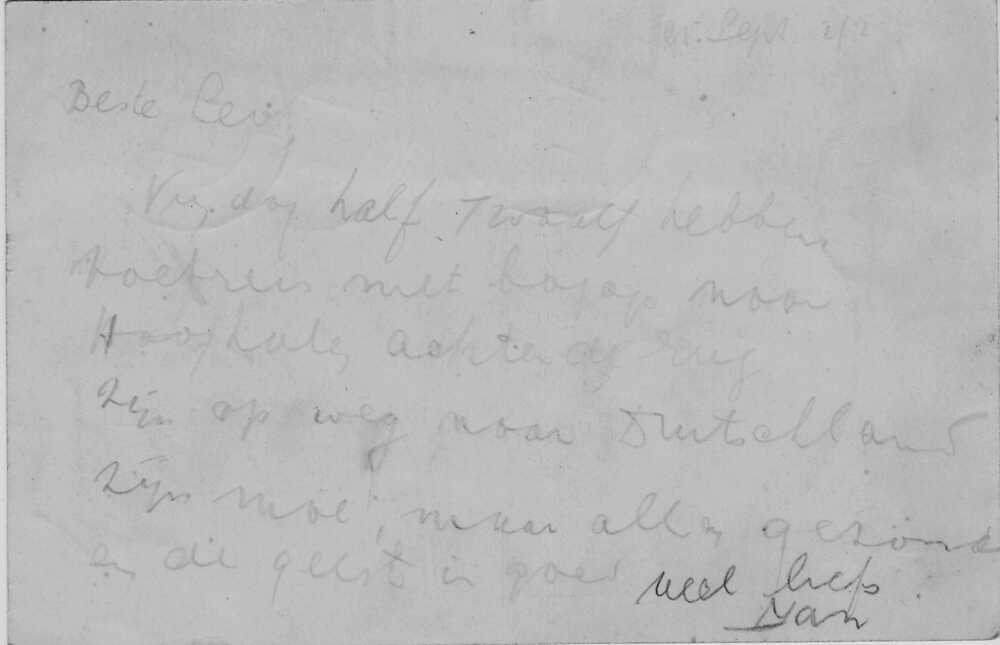 Sept
Beste Leo,
Vrydag half Twaalf hebben
voetreis met bagage naar
Hooghalen achter de rug
zijn op weg naar Deutschland
zijn moe, maar allen gezond
en de geest is goed veel liefs
Man